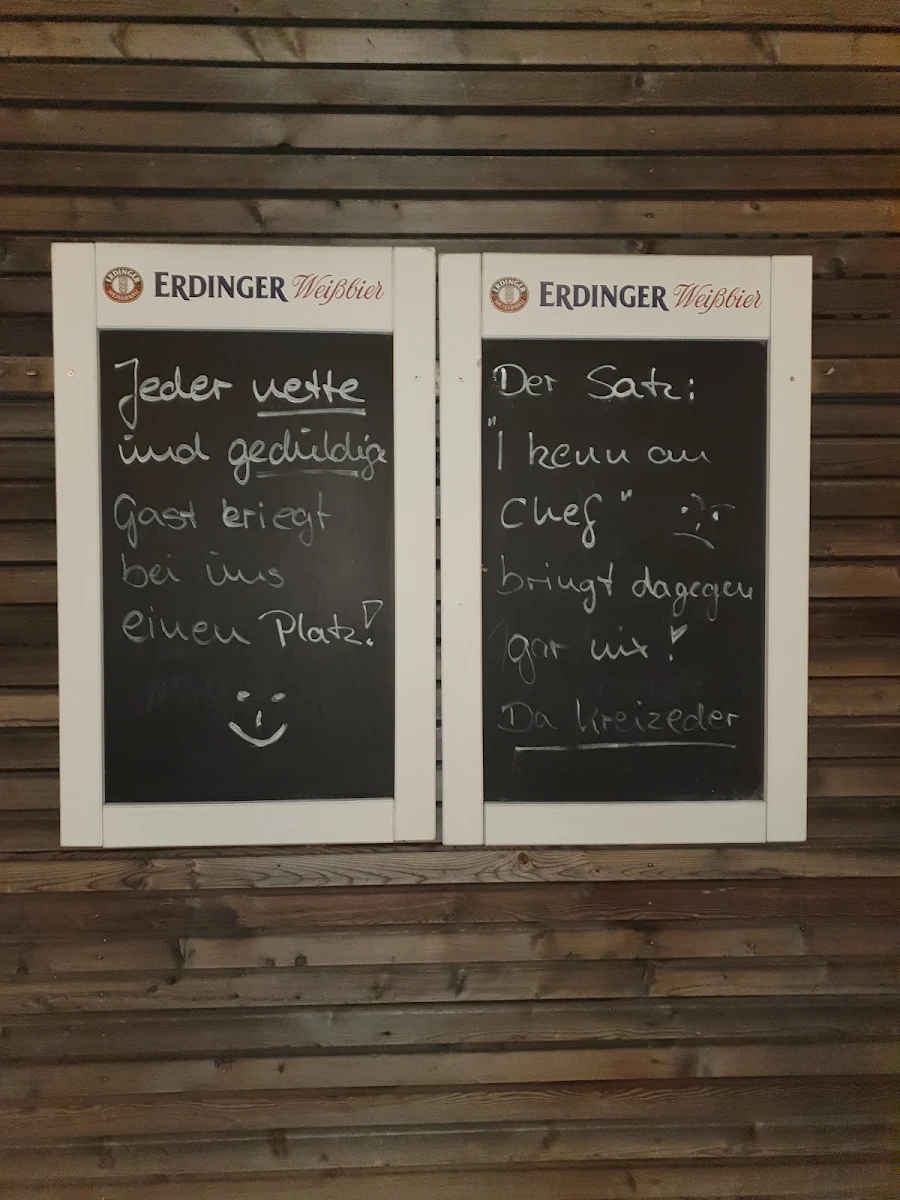 ERDINGER Weißbier
Jeder nette
und geduldige
Gast kriegt
bei uns
einen Platz!
ERDINGER Weißbier
Der Satz:
"I kenn an
Chef"
bringt dagegen
gar nix!
Da Kreizeder